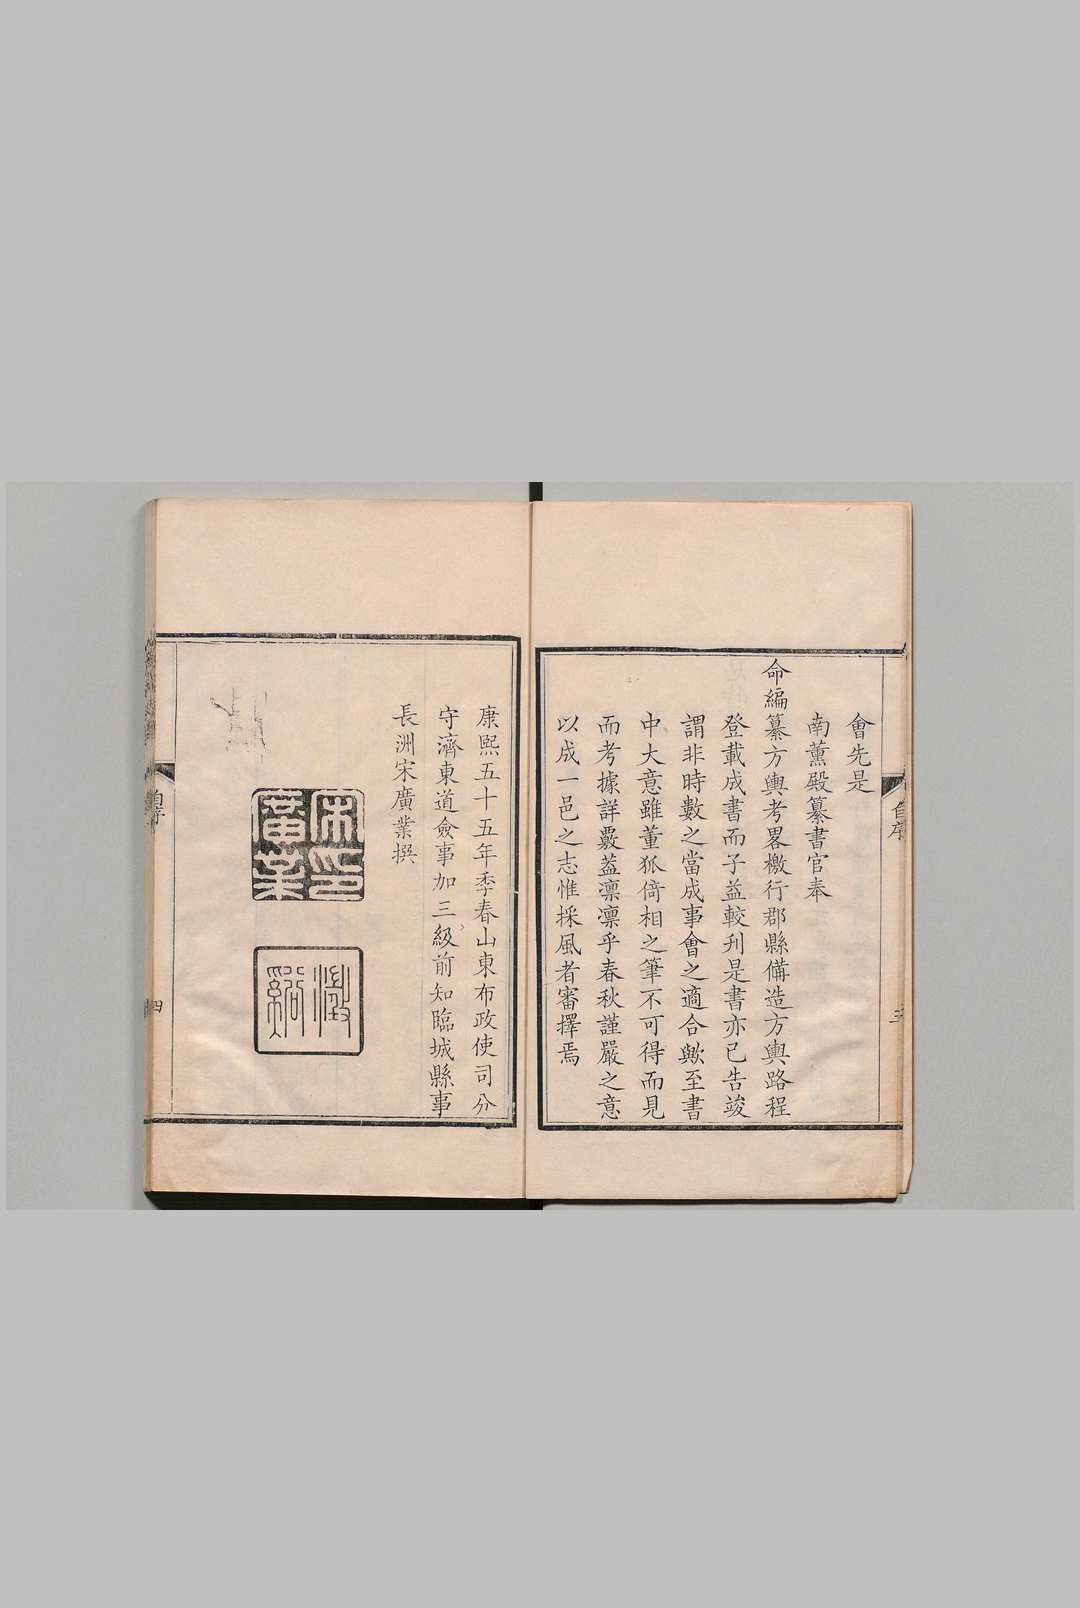 會先是
南薰殿纂書官奉
命編纂方輿考畧檄行郡縣備造方輿路程
登載成書而子益較刋是書亦已告竣
謂非時數之當成事會之適合歟至書
中大意雖董狐倚相之筆不可得而見
而考據詳覈葢凛凛乎春秋謹嚴之意
以成一邑之志惟採風者審擇焉
自序
三
康熙五十五年季春山東布政使司分
守濟東道僉事加三級前知臨城縣事
長洲宋廣業撰
宋廣業印
澂谿
自序
四